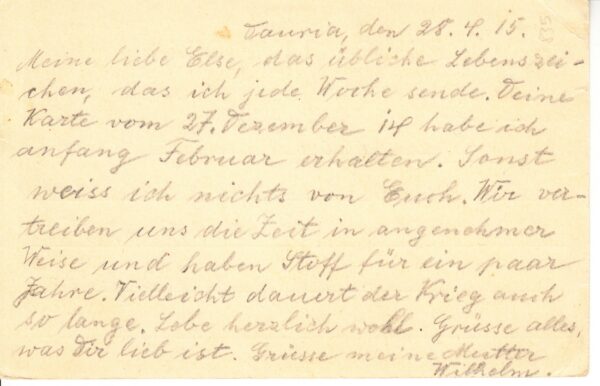 Tauria, den 28.4.15.
Meine liebe Else, das übliche Lebenszei-
chen, das ich jede Woche sende. Deine
Karte vom 27. Dezember 14 habe ich
anfang Februar erhalten. Sonst
weiss ich nichts von Euch. Wir ver-
treiben uns die Zeit in angenehmer
Weise und haben Stoff für ein paar
Jahre. Vielleicht dauert der Krieg auch
so lange. Lebe herzlich wohl. Grüsse alles,
was Dir lieb ist. Grüsse meine Mutter
Wilhelm.